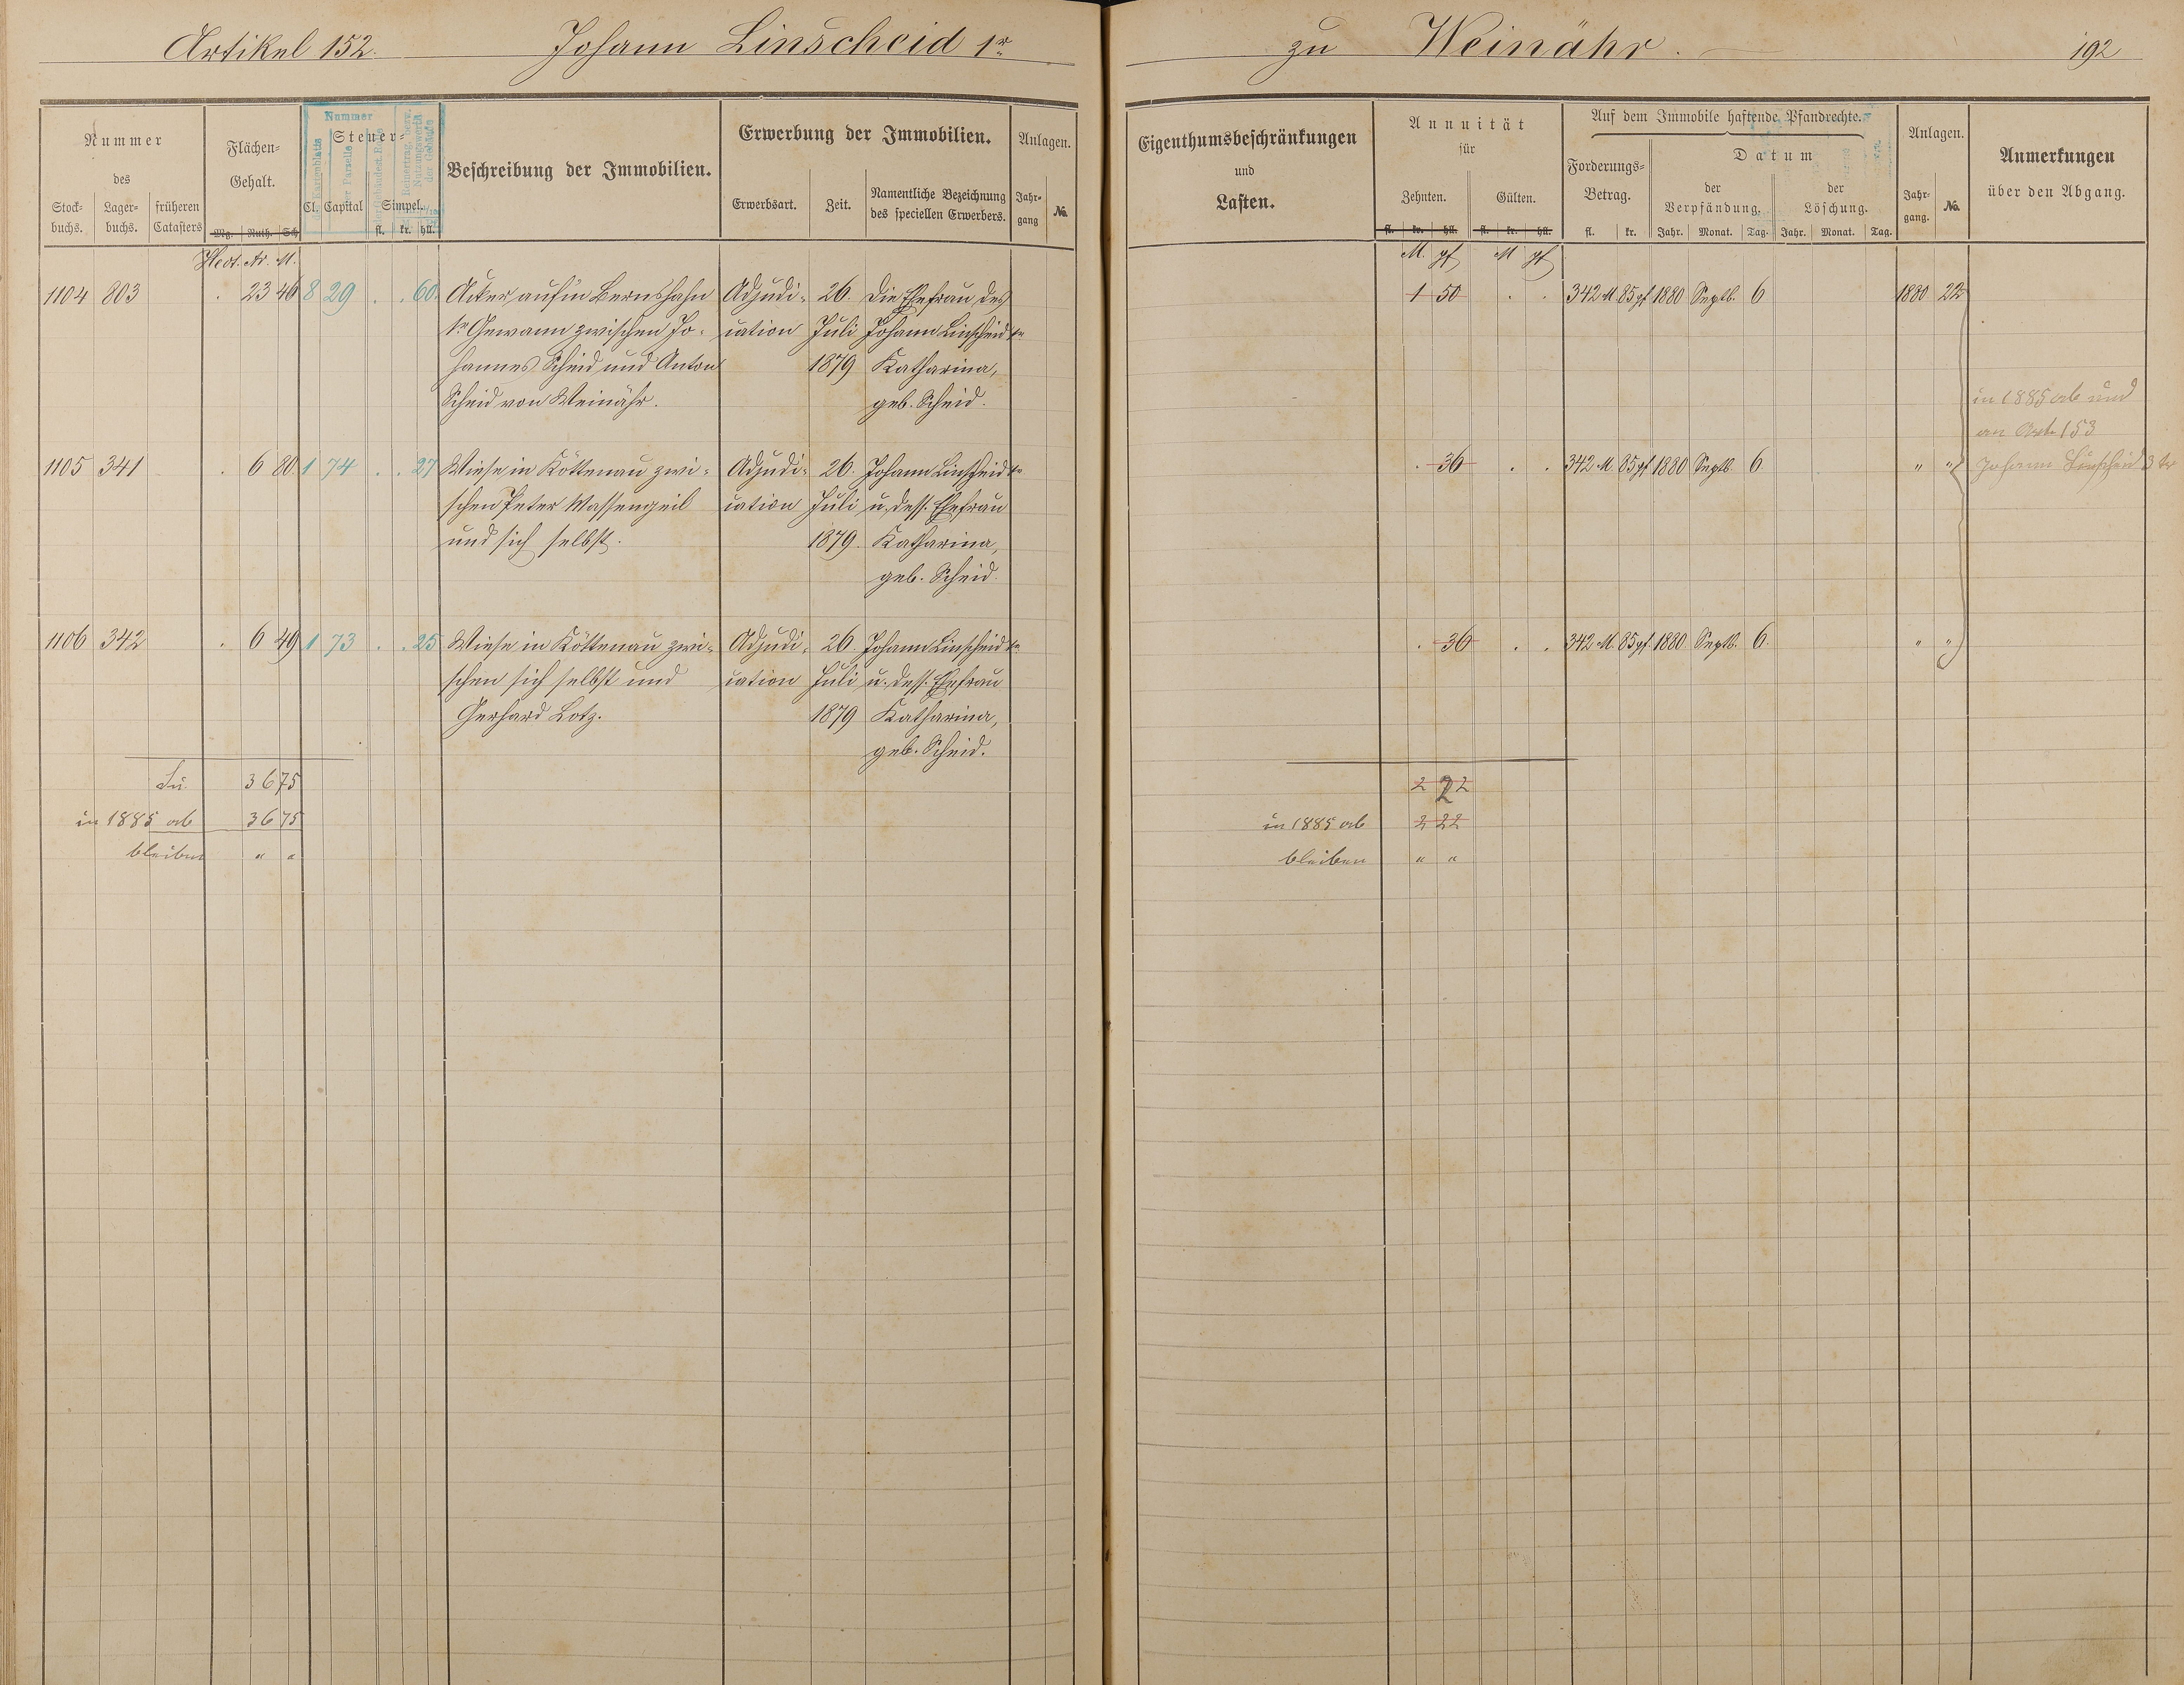 Artikel 152. Johann Linscheid 1r zu Weinähr. 192
Nummer
des
Stock-
buchs.
Lager-
buchs.
früheren
Catasters
Flächen-
Gehalt.
Mg. Ruth. Sch
Nummer
Steuer-
Cl. Capital Simpel.
fl. kr. hll.
Beschreibung der Immobilien.
Erwerbung der Immobilien.
Erwerbsart. Zeit.
Namentliche Bezeichnung
des speciellen Erwerbers.
Anlagen.
Jahr-
gang
No.
Eigenthumsbeschränkungen
und
Lasten.
Annuität
für
Zehnten. Gülten.
fl. kr. hll. fl. kr. hll.
Auf dem Immobile haftende Pfandrechte.
Forderungs-
Betrag.
fl. kr.
Datum
der
Verpfändung.
Jahr. Monat. Tag.
der
Löschung.
Jahr. Monat. Tag.
Anlagen.
Jahr-
gang.
No.
Anmerkungen
über den Abgang.
Hect. Ar. M. M. pf M pf
1104 803 . 23 46 8 29 . . 60. Acker auf'm Bernshahn Adjudi- 26. Die Ehefrau des 1 50 . . 342 M. 85 pf 1880 Septb. 6 1880 22
1r Gewann zwischen Jo- cation Juli Johann Linscheid 1r
hannes Scheid und Anton 1879 Katharina,
Scheid von Weinähr. geb. Scheid. in 1885 ab und
an Art 153
1105 341 . 6 80 1 74 . . 27 Wiese in Köttenau zwi- Adjudi- 26. Johann Linscheid 1r . 36 . . 342 M. 85 pf 1880 Septb. 6 " " Johann Linscheid 3 ter
schen Peter Massengeil cation Juli u. dess. Ehefrau
und sich selbst. 1879. Katharina,
geb. Scheid.
1106 342 . 6 49 1 73 . . 25 Wiese in Köttenau zwi- Adjudi- 26. Johann Linscheid 1r . 36 . . 342 M. 85 pf. 1880 Septb. 6. " "
schen sich selbst und cation Juli u. dess. Ehefrau
Gerhard Lotz. 1879 Katharina,
geb. Scheid.
Su. 36 75 2 22
in 1885 ab 36 75 in 1885 ab 2 22
bleiben " " bleiben " "